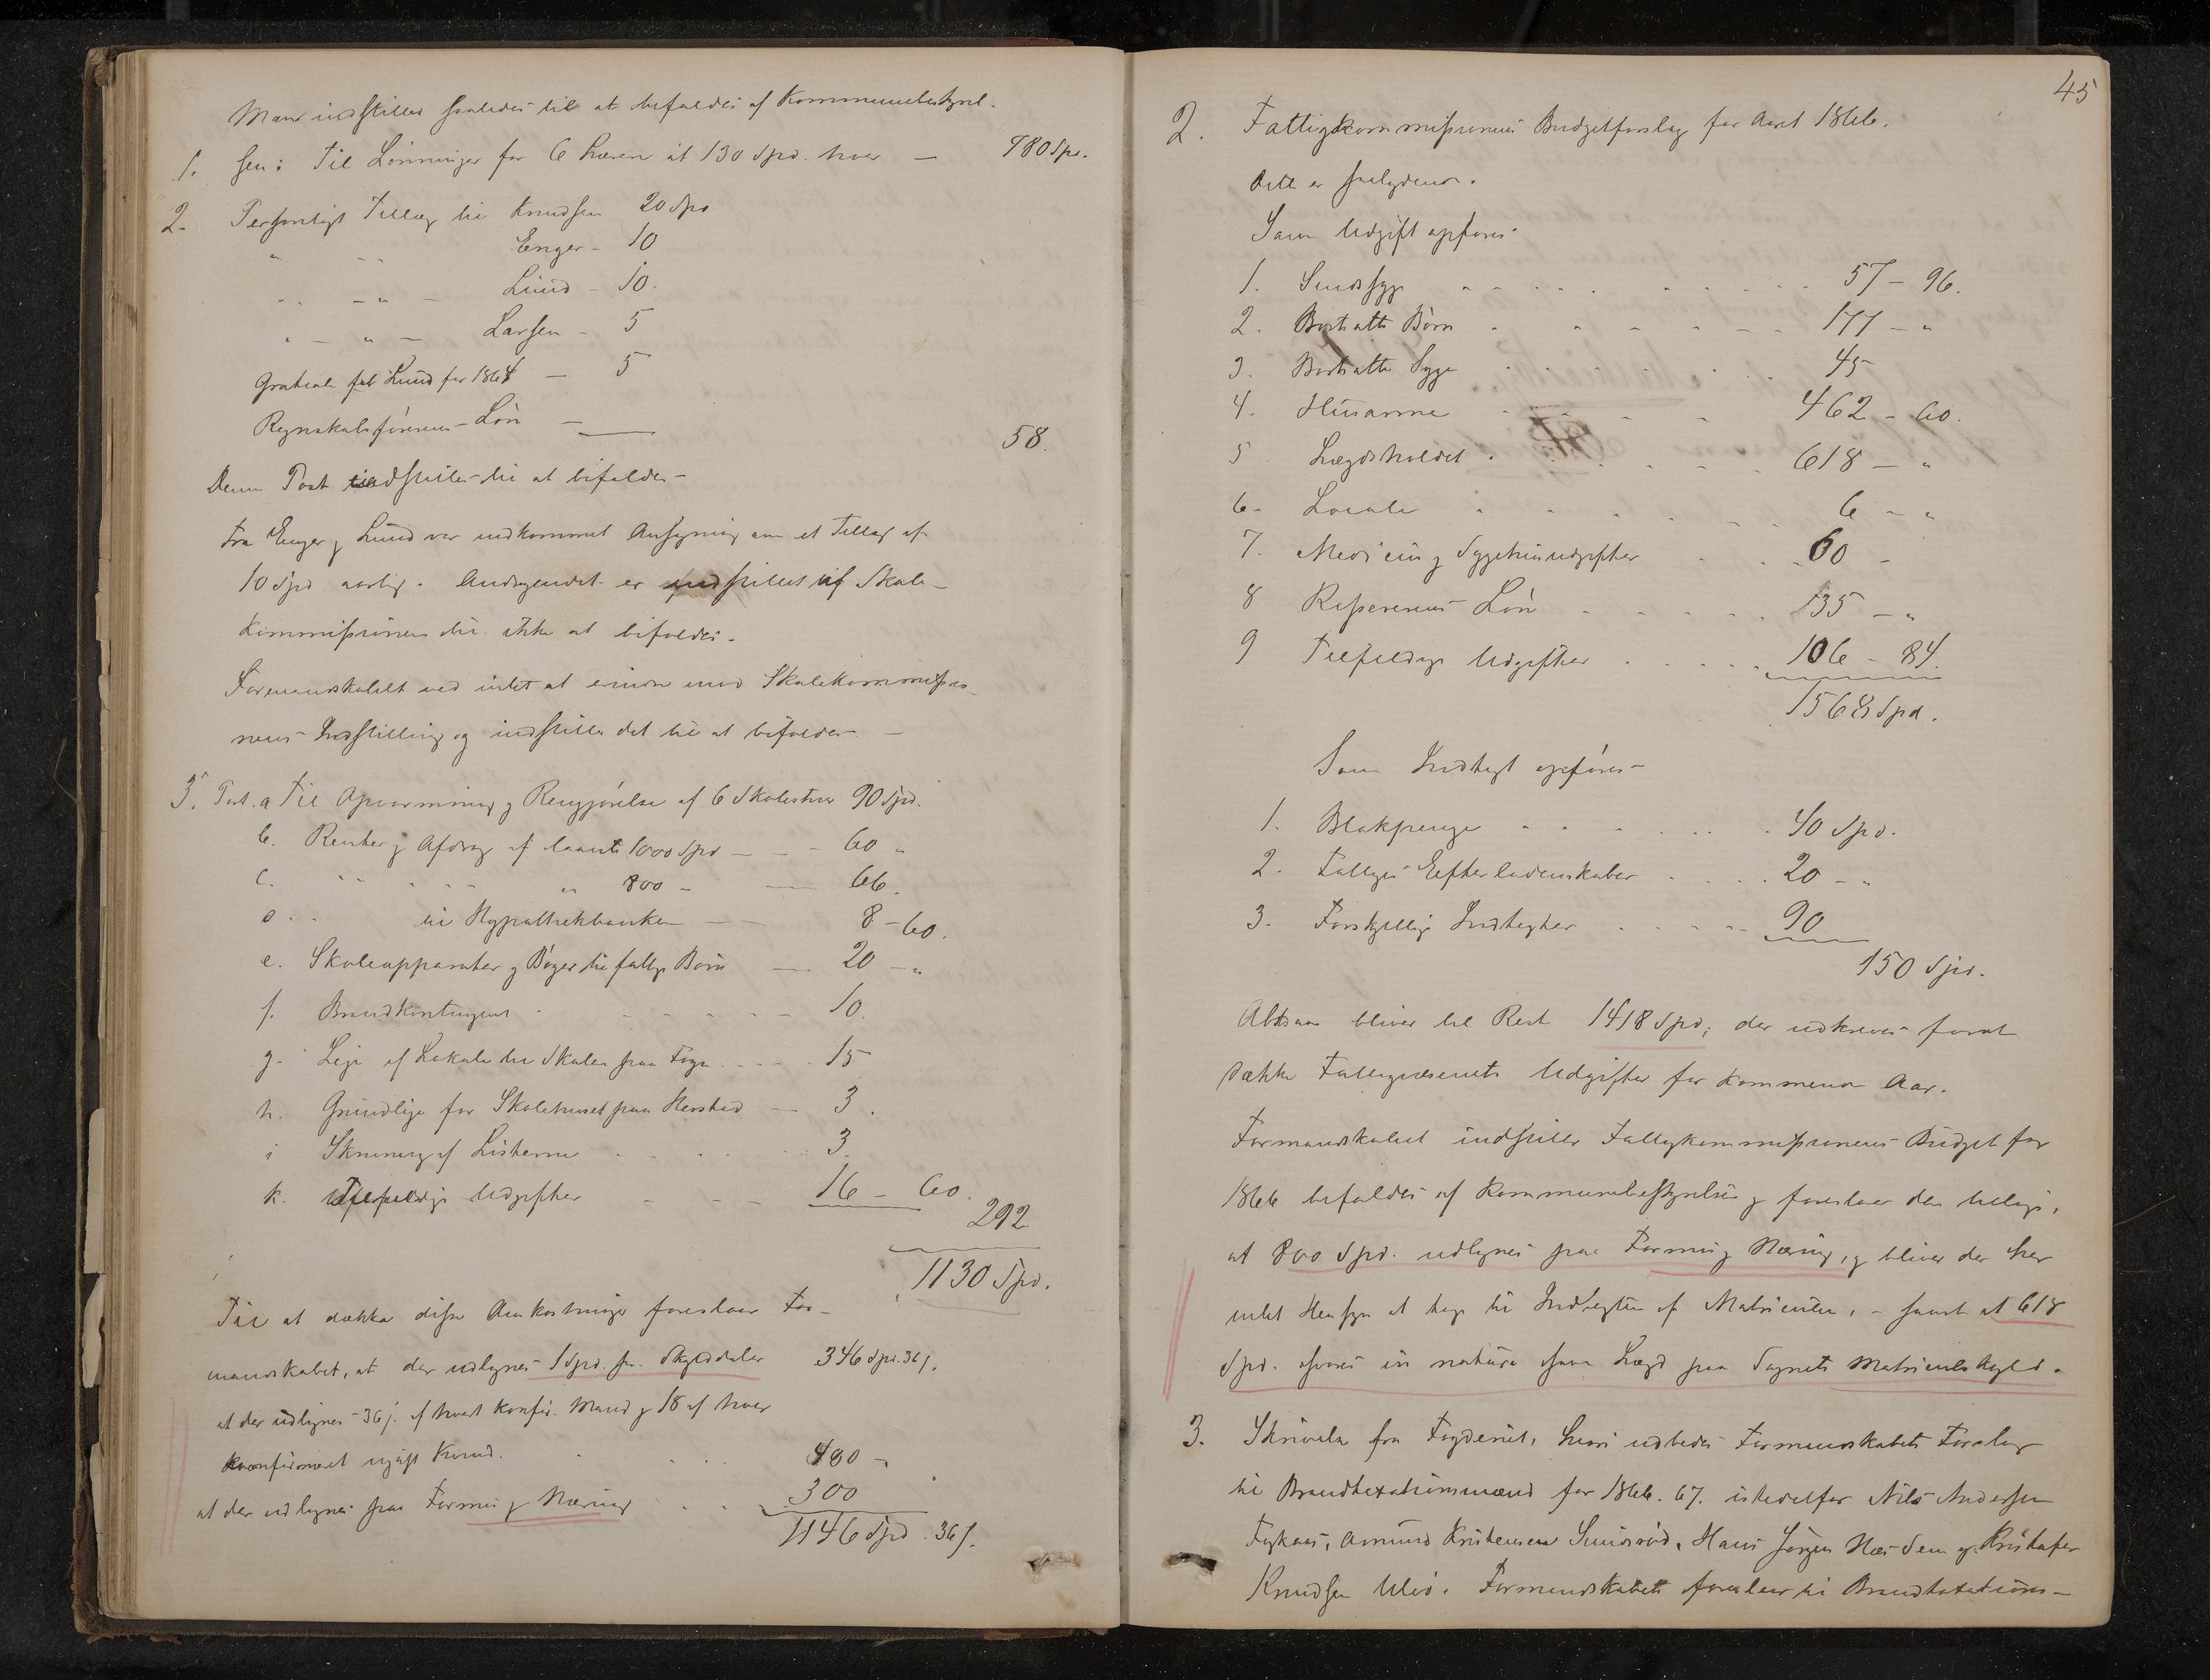 Man indstiller saaledes til at bifaldes af Kommunebestyrel-
1. sen: Til Lønninger for 6 Lærere at 130 Spd. hver — 780 Spd.
2. Personligt Tillæg til Knudsen 20 Spd
" - - Enger - 10
- - - " - Lund - 10.
" - " - Larsen - 5
Gratiale til Lund for 1864 — 5
Regnskabsførerens Løn —
58.
Denne Post indstilles til at bifaldes -
Fra Enger og Lund var indkommet Ansøgning om et Tillæg af
10 Spd aarlig. Andragendet er indstillet af Skole-
kommissionen til ikke at bifaldes.
Formandskabet ved intet at erindre mod Skolekommissio-
nens Indstilling og indstiller det til at bifaldes. —
3. Post. a Til Opvarmning og Rengjørelse af 6 Skolestuer 90 Spd.
b. Renter og Afdrag af laante 1000 Spd — - - 60 "
c. " " " " 800 - — 66.
d. " til Hypothekbanken — 8 - 60.
e. Skoleapparater og Bøger til fattige Børn — 20 - "
f. Brandkontingent - - - - - 10.
g. Leje af Lokale til Skolen paa . . . . 15
h. Grundleje for Skolehuset paa — 3.
i . . . . . 3.
k. Tilfældige Udgifter - - - 16 - 60.
292
1130 Spd.
Til at dække disse Omkostninger foreslaar For-
mandskabet, at der udlignes 1 Spd. pr. Skylddaler 346 Spd. 36 s.
at der udlignes 36 s. af hver konfir. Mand og 18 af hver
konfirmeret ugift Kvind. . . . 480 -
at der udlignes paa Formue og Næring . . 300
1146 Spd. 36 s.
45
2. Fattigkommissionens Budgetforslag for Aaret 1866.
Dette er saalydende.
Som Udgift opføres -
1. Sindssyge . . . . . . . . 57 - 96.
2. Bortsatte Børn . . . . . . 177 - "
3. Bortsatte Syge . . . . . . 45
4. Husarme - - - - 462 - 60.
5. Lægdsholdet . . . . . 618 - "
6. Locale . . . . . 6 - "
7. Medicin og Sygehusudgifter . . . 60 -
8 Kassererens Løn . . . . . 135 - "
9 Tilfældige Udgifter . . . . . 106 - 84.
1568 Spd.
Som Indtægt opføres -
1. Blakpenge . . . . . . 40 Spd.
2. Fattiges Efterladenskaber . . . . 20 - "
3. Forskjellige Indtægter . . . . . 90
150 Spd.
Altsaa bliver til Rest 1418 Spd; der udkræves forat
dække Fattigvæsenets Udgifter for kommende Aar.
Formandskabet indstiller Fattigkommissionens Budget for
1866 bifaldes af Kommunebestyrelsen og foreslaar den tillige,
at 800 Spd. udlignes paa Formue og Næring, og bliver der her
intet Hensyn at tage til Indtægten af Matriculen, - samt at 618
Spd. svares in natura som Lægd paa Sognets Matriculskyld.
3. Skrivelse fra Fogderiet, hvori udbedes Formandskabets Forslag
til Brandtaxationsmænd for 1866. 67. istedetfor Nils Andersen
Fykaas, Amund Kristensen Sundsrød, Hans Jørgen Næs Sem og Kristofer
Knudsen Ulvø. Formandskabet foreslaar til Brandtaxations-